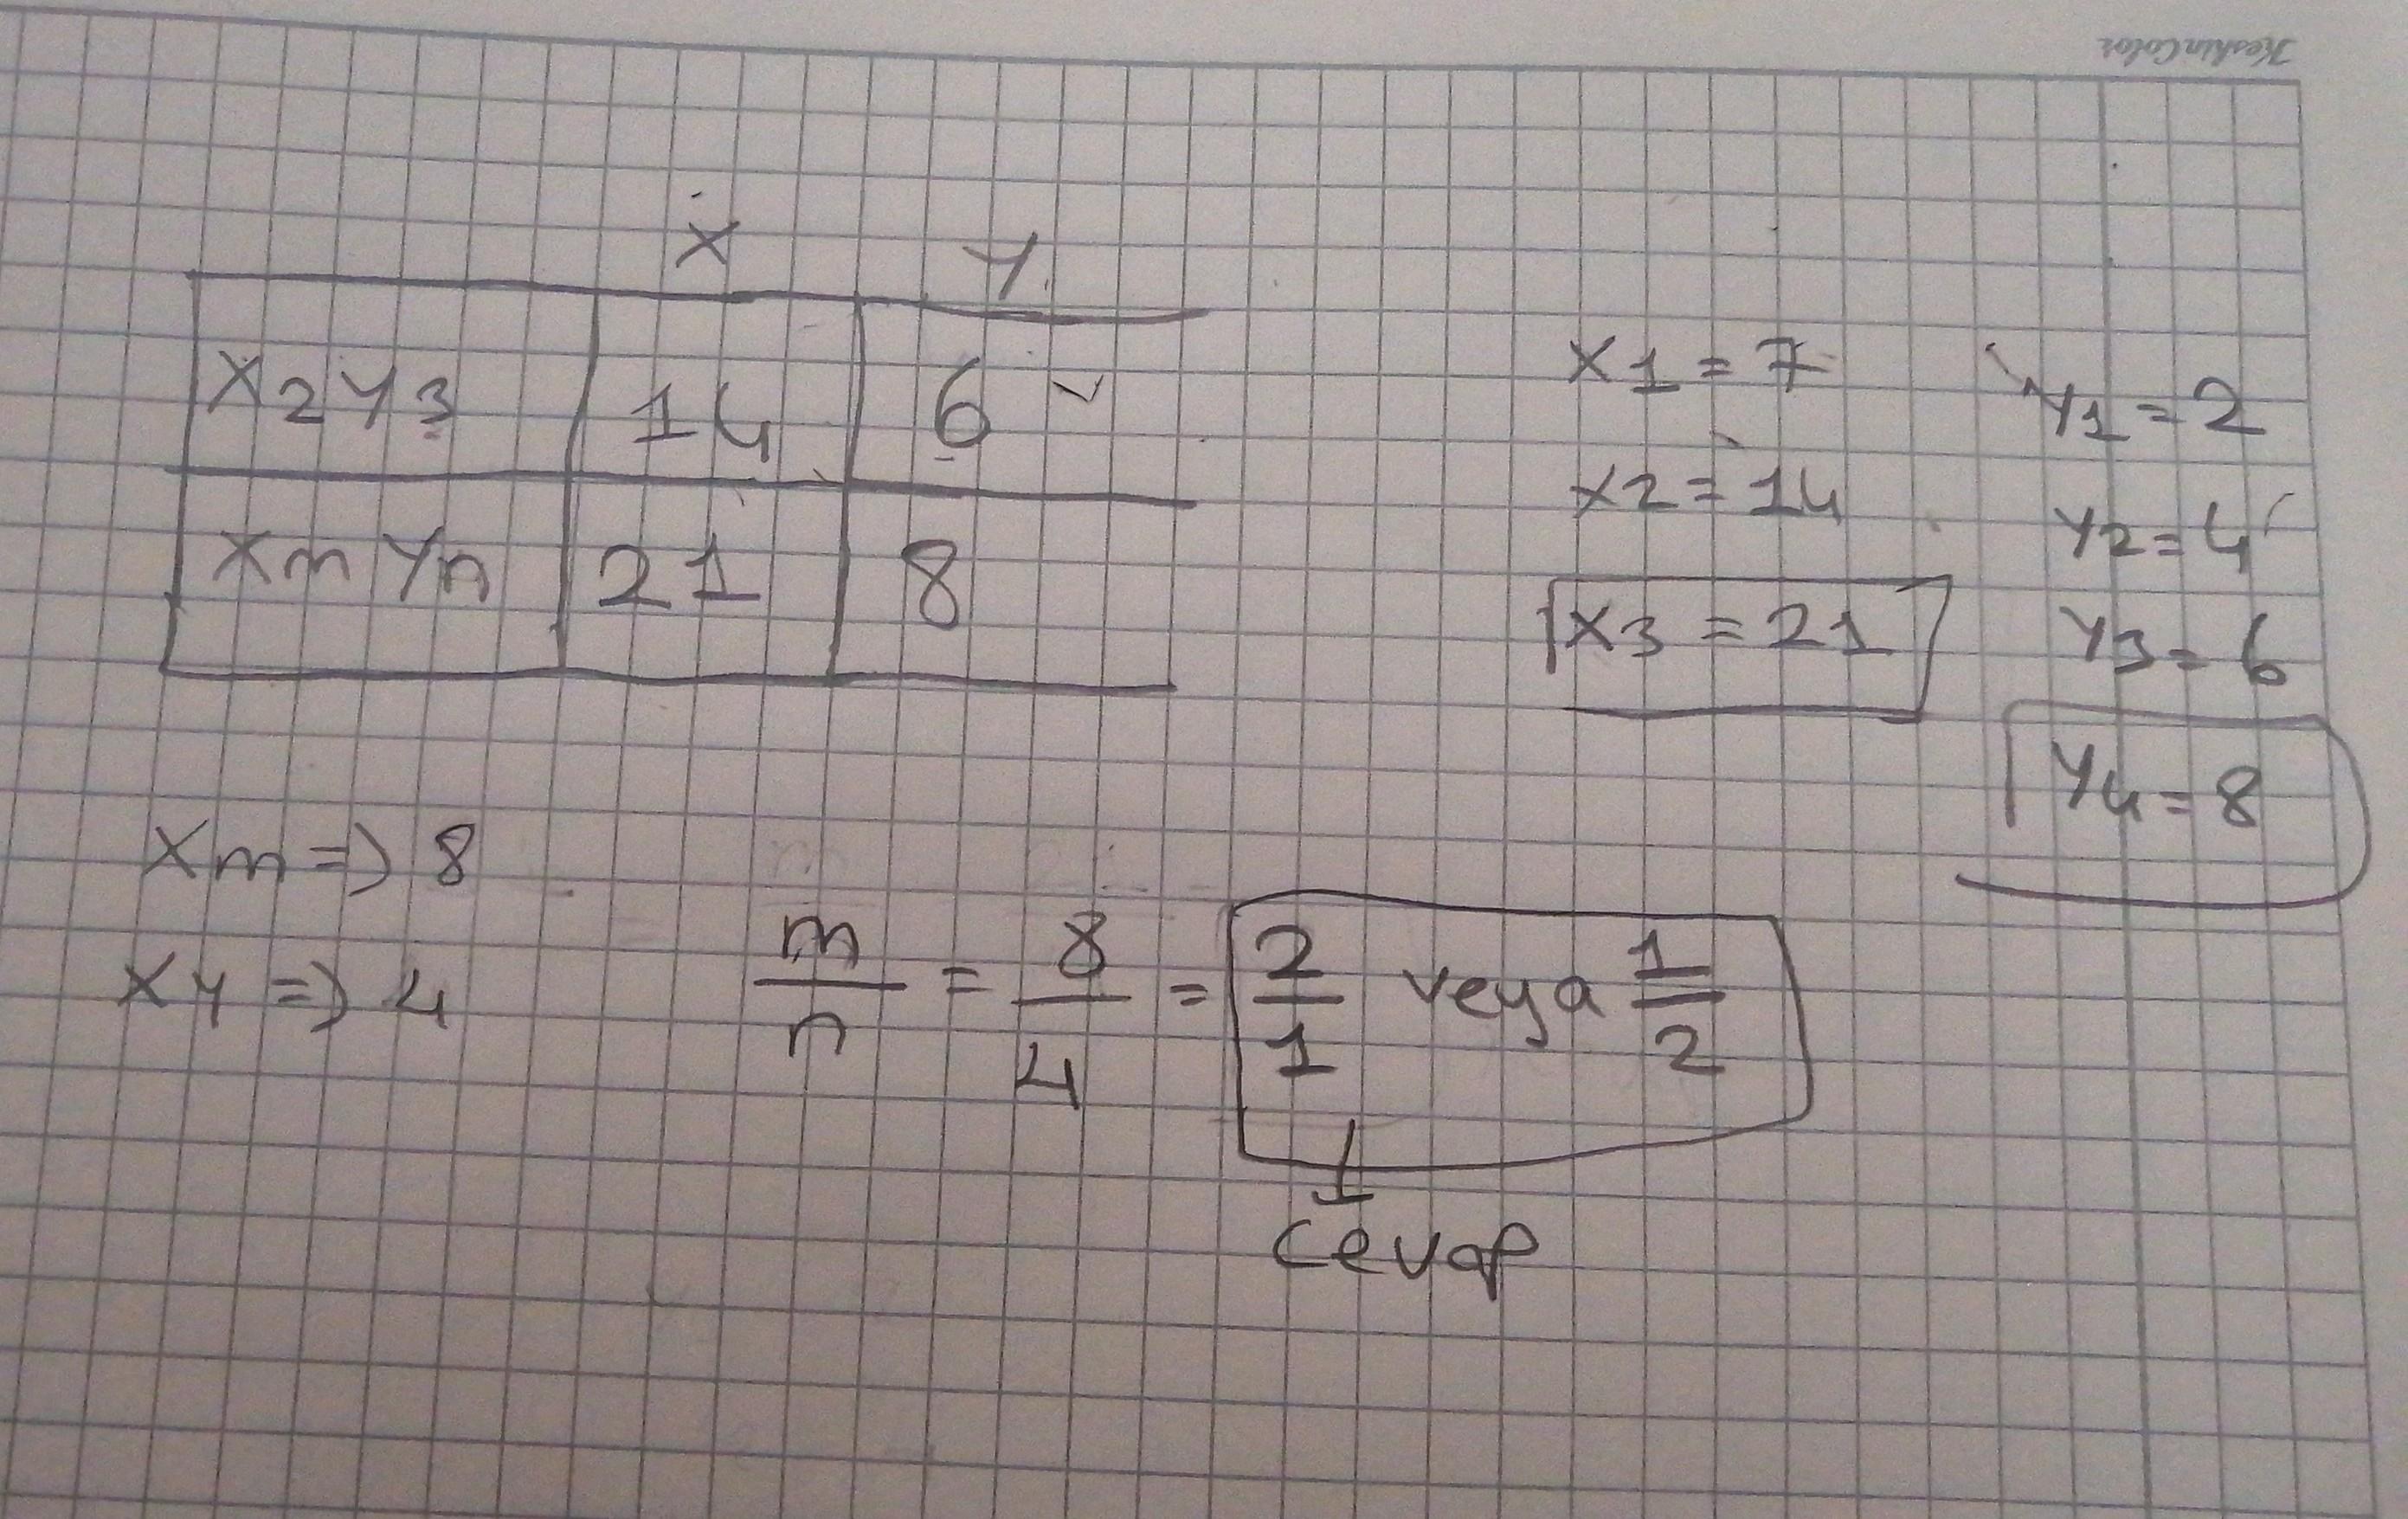 KeskinColor
X Y
X2Y3 14 6
XmYn 21 8
X1 = 7
X2 = 14
X3 = 21
Y1 = 2
Y2 = 4
Y3 = 6
Y4 = 8
Xm => 8
XY => 4
m/n = 8/4 = 2/1 veya 1/2
cevap